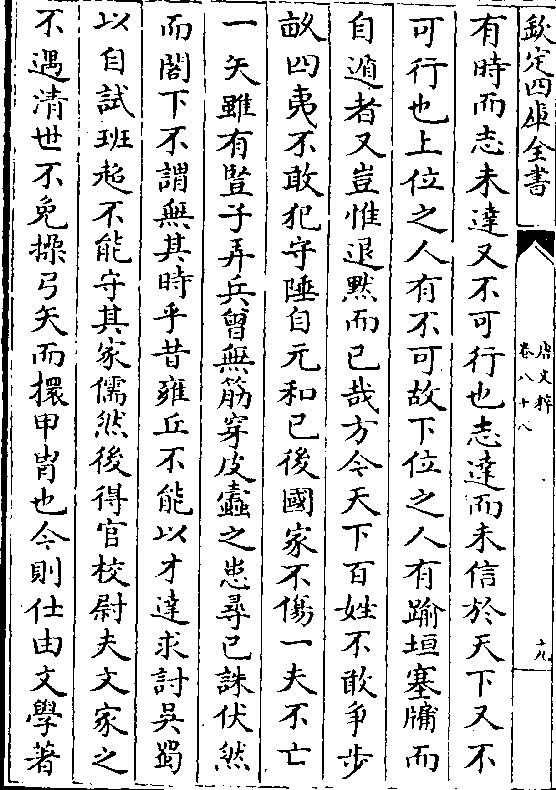 欽定四庫全書
唐文粹
卷八十八
十九
有時而志未達又不可行也志達而未信於天下又不
可行也上位之人有不可故下位之人有踰垣塞牖而
自遁者又豈惟退黙而已哉方今天下百姓不敢争步
畝四夷不敢犯守陲自元和已後國家不傷一夫不亡
一矢雖有豎子弄兵曾無筋穿皮蠧之患尋已誅伏然
而閤下不謂無其時乎昔雍丘不能以才達求討吳蜀
以自試班超不能守其家儒然後得官校尉夫文家之
不遇清世不免操弓矢而擐甲胄也今則仕由文學著